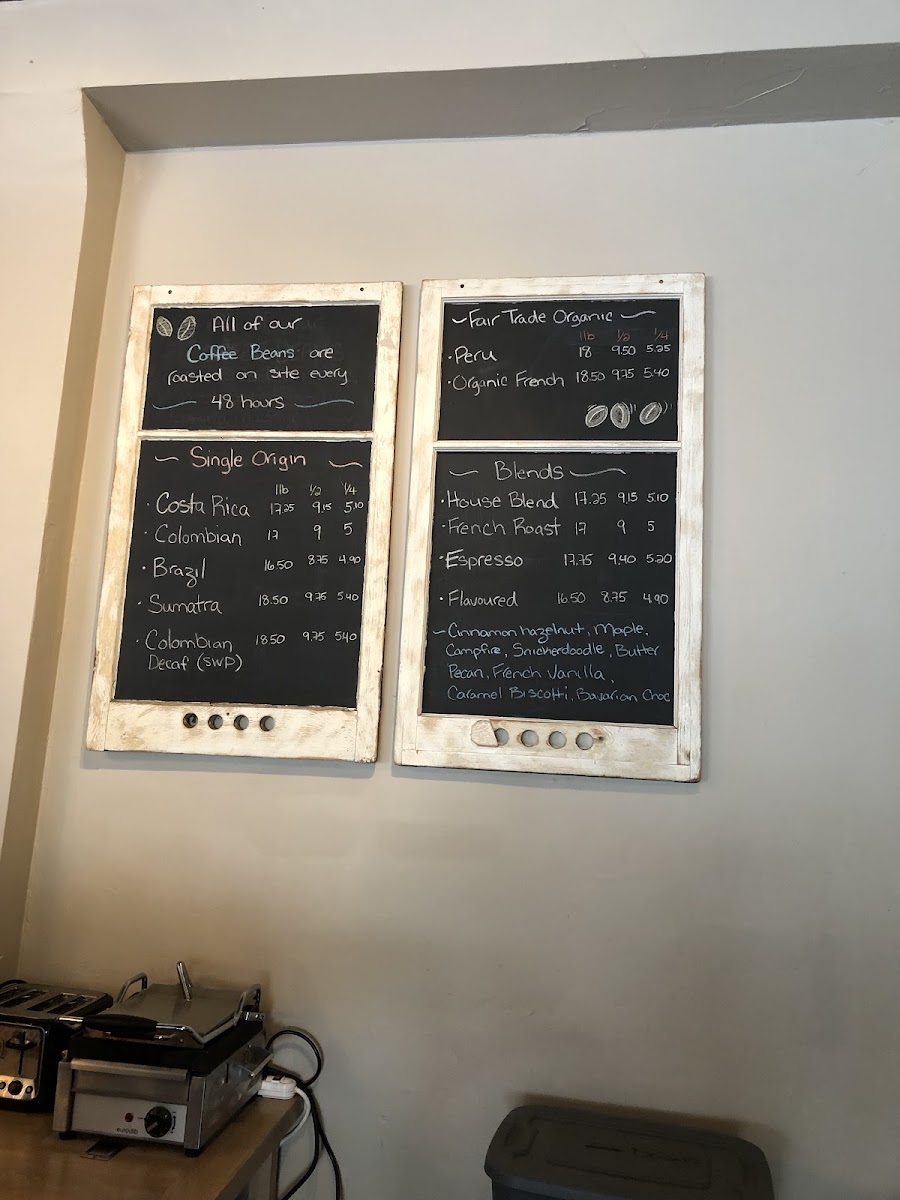 All of our
Coffee Beans are
roasted on site every
48 hours
Single Origin
1lb 1/2 1/4
· Costa Rica 17.25 9.15 5.10
· Colombian 17 9 5
· Brazil 16.50 8.75 4.90
· Sumatra 18.50 9.75 5.40
· Colombian 18.50 9.75 5.40
Decaf (SWP)
Fair Trade Organic
1lb 1/2 1/4
· Peru 18 9.50 5.25
· Organic French 18.50 9.75 5.40
Blends
· House Blend 17.25 9.15 5.10
· French Roast 17 9 5
· Espresso 17.75 9.40 5.20
· Flavoured 16.50 8.75 4.90
~ Cinnamon hazelnut, Maple,
Campfire, Snickerdoodle, Butter
Pecan, French Vanilla,
Caramel Biscotti, Bavarian Choc
eurodib